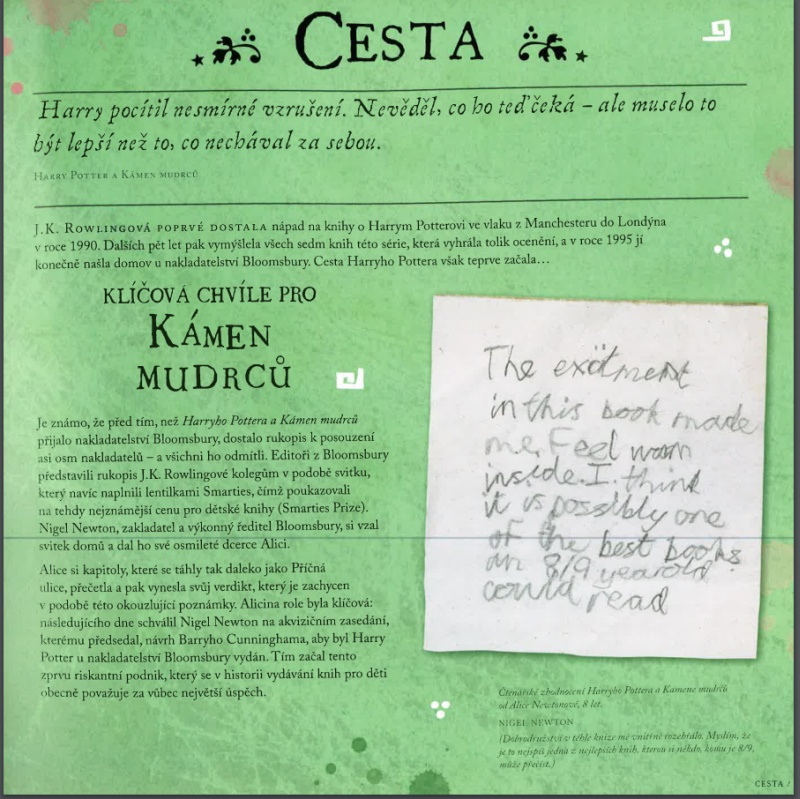 CESTA
Harry pocítil nesmírné vzrušení. Nevěděl, co ho teď čeká – ale muselo to
být lepší než to, co nechával za sebou.
HARRY POTTER A KÁMEN MUDRCŮ
J.K. ROWLINGOVÁ POPRVÉ DOSTALA nápad na knihy o Harrym Potterovi ve vlaku z Manchesteru do Londýna
v roce 1990. Dalších pět let pak vymýšlela všech sedm knih této série, která vyhrála tolik ocenění, a v roce 1995 jí
konečně našla domov u nakladatelství Bloomsbury. Cesta Harryho Pottera však teprve začala…
KLÍČOVÁ CHVÍLE PRO
KÁMEN
MUDRCŮ
Je známo, že před tím, než Harryho Pottera a Kámen mudrců
přijalo nakladatelství Bloomsbury, dostalo rukopis k posouzení
asi osm nakladatelů – a všichni ho odmítli. Editoři z Bloomsbury
představili rukopis J.K. Rowlingové kolegům v podobě svitku,
který navíc naplnili lentilkami Smarties, čímž poukazovali
na tehdy nejznámější cenu pro dětské knihy (Smarties Prize).
Nigel Newton, zakladatel a výkonný ředitel Bloomsbury, si vzal
svitek domů a dal ho své osmileté dcerce Alici.
Alice si kapitoly, které se táhly tak daleko jako Příčná
ulice, přečetla a pak vynesla svůj verdikt, který je zachycen
v podobě této okouzlující poznámky. Alicina role byla klíčová:
následujícího dne schválil Nigel Newton na akvizičním zasedání,
kterému předsedal, návrh Barryho Cunninghama, aby byl Harry
Potter u nakladatelství Bloomsbury vydán. Tím začal tento
zprvu riskantní podnik, který se v historii vydávání knih pro děti
obecně považuje za vůbec největší úspěch.
The exitment
in this book made
me. Feel worm
inside. I. think
it is possibly one
of the best books
an 8/9 year old
could read
Čtenářské zhodnocení Harryho Pottera a Kamene mudrců
od Alice Newtonové, 8 let.
NIGEL NEWTON
(Dobrodružství v téhle knize mě vnitřně rozehřálo. Myslím, že
je to nejspíš jedna z nejlepších knih, kterou si někdo, komu je 8/9,
může přečíst.)
CESTA /